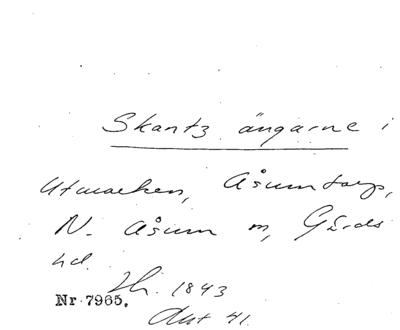 Skantz ängarne i
Utmarken, Åsumtorp,
N. Åsum sn, Gärds
hd.
Lh. 1843
Nr 7965.
Akt 41.